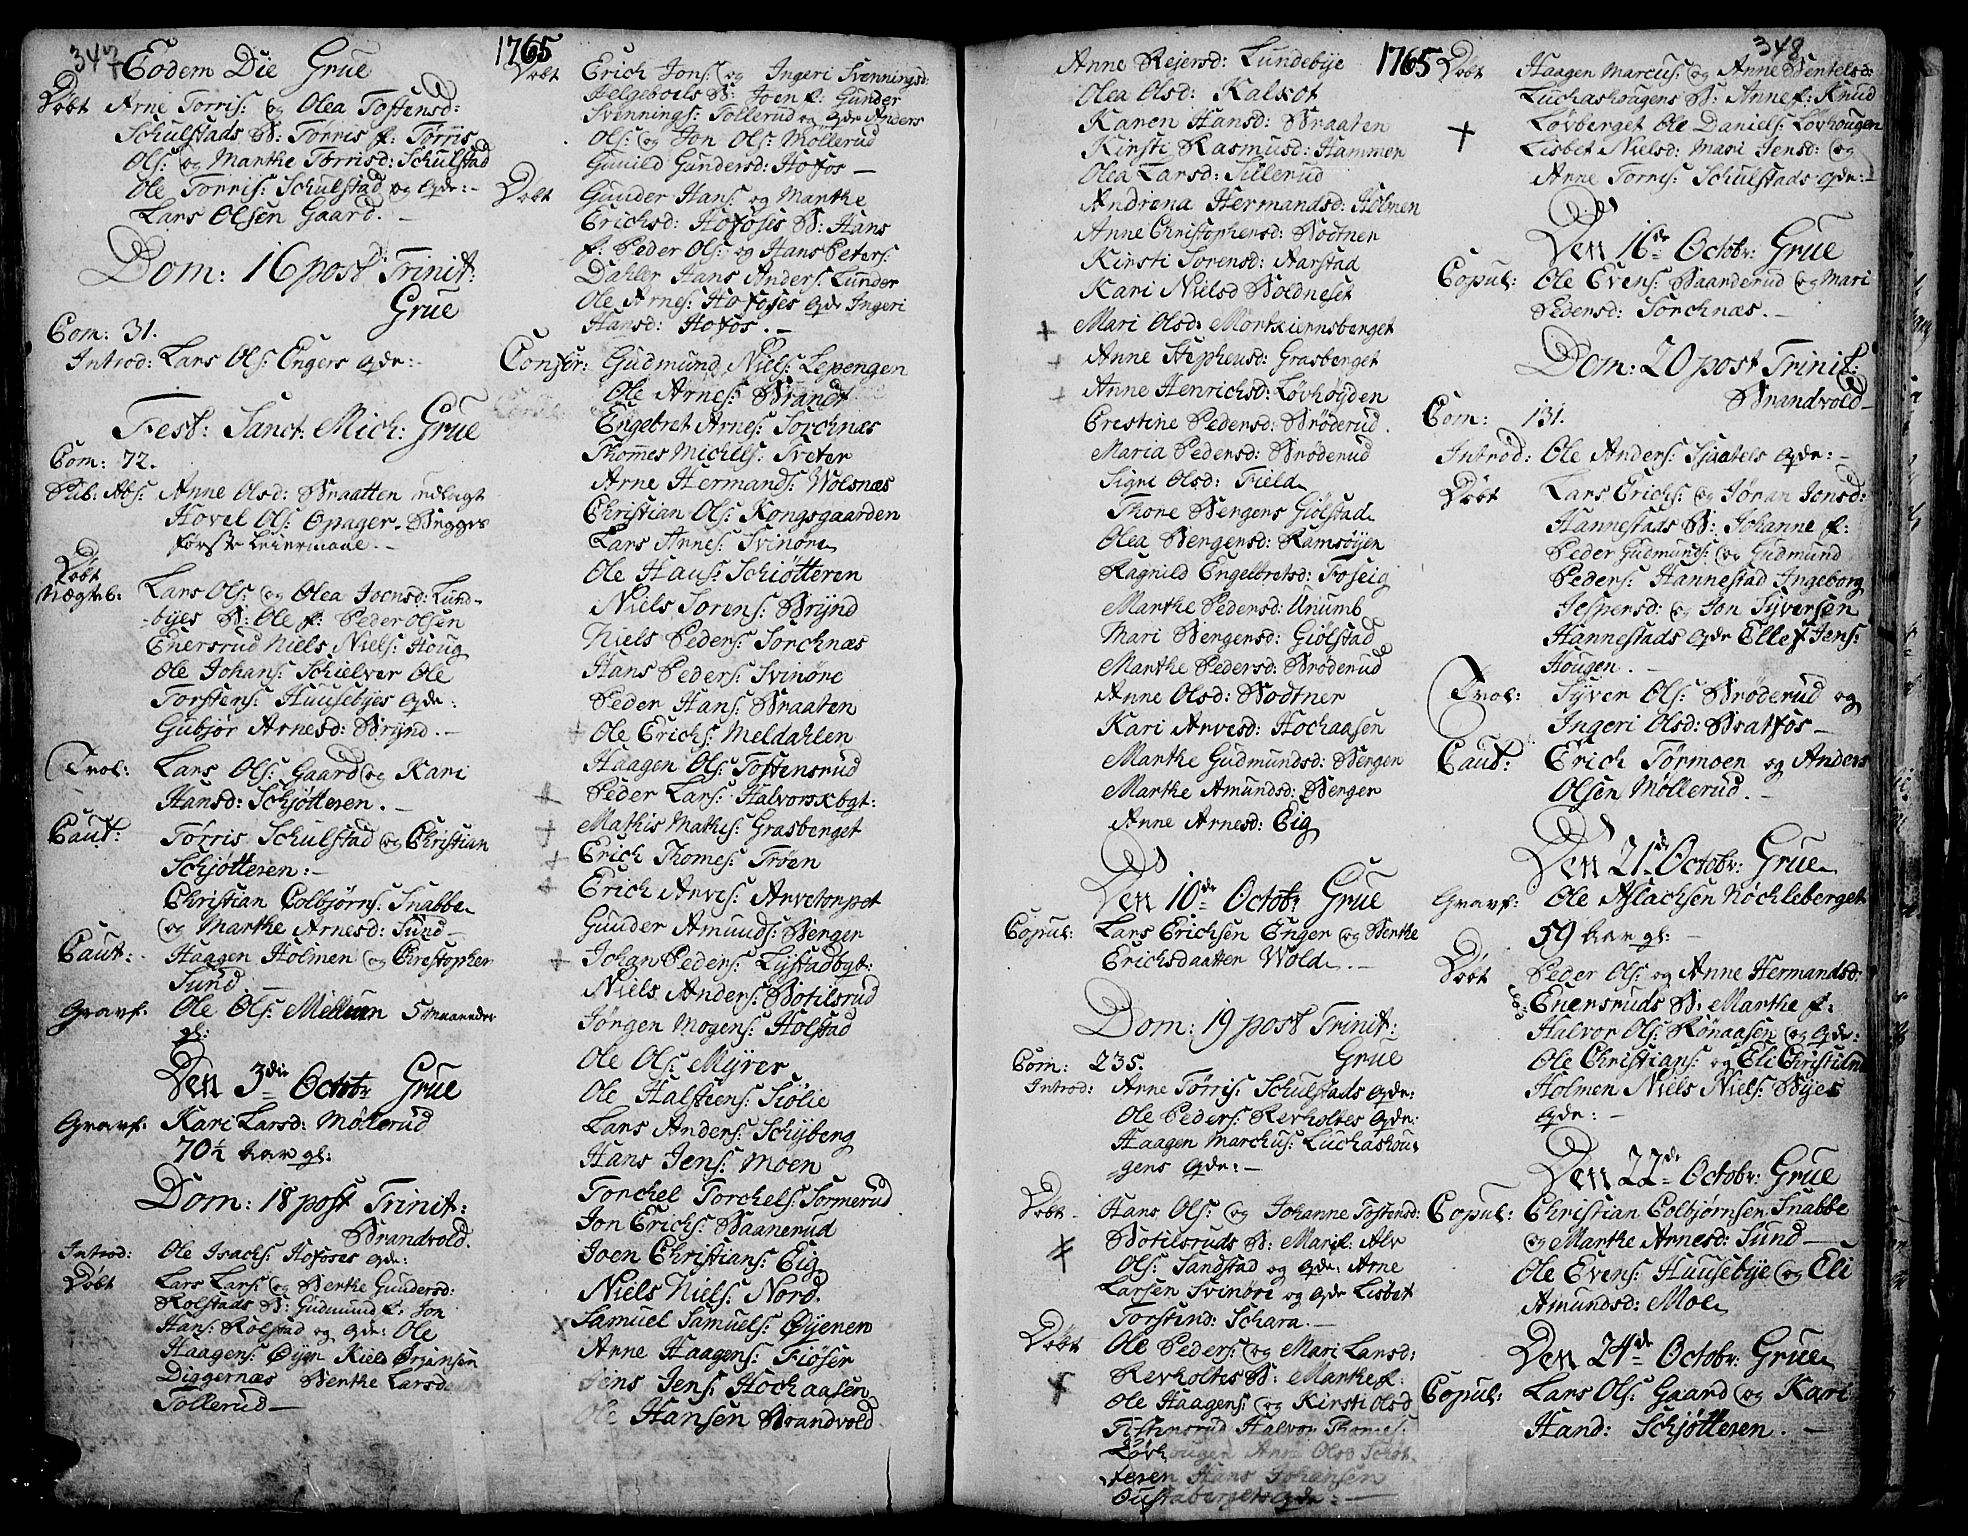 347
1765
Eodem Die Grue
Døbt Arne Torris: og Olea Tostensd:
Schulstads B: Tørris f: Tørris
Ols: og Marthe Torrisd: Schulstad
Ole Torris: Schulstad og Qde:-
Lars Olsen Gaard. -
Dom: 16 post Trinit:
Grue
Com: 31.
Introd: Lars Ols: Engers Qde:-
Fest: Sanct: Mich: Grue
Com: 72.
Pub: Abs: Anne Olsd: Braatten udlagt
Hovel Ols: Opager. Begges
første Leiermaal. -
Døbt
Nægtb: Lars Ols: og Olea Joensd: Lund-
-byes B: Ole f: Peder Olsen
Enersrud Niels Niels: Houg
Ole Johans: Schielver Ole
Torstens: Huusebyes Qde:
Gubjør Arnesd: Brÿnd. -
Trol: Lars Ols: Gaard og Kari
Hansd: Schjøtteren. -
Caut: Tørris Schulstad og Christian
Schjøtteren: -
Christian Colbjørns: Snabbe
og Marthe Arnesd: Sund -
Caut: Haagen Holmen og Christopher
Sund. -
Gravf: Ole Ols: Mellum 5 maaneder
gl:
Den 3die Octobr Grue
Gravf: Kari Larsd: Møllerud
70½ aar gl:
Dom: 18 post Trinit:
Brandvold.
Introd: Ole Isachs: Hofoses Qde:
Døbt Lars Lars: og Berthe Gundersd:
Rolstads B: Gudmund f: Jon
Hans: Rolstad og Qde: Ole
Haagens: Øÿen Niels Ørjansen
Diggernæs Berthe Larsd
Tollerud -
Døbt Erich Jons: og Ingeri Svenningsd:
Helgeboels B: Joen f: Gunder
Svennings: Tollerud og Qde Anders
Ols: og Jon Ols: Møllerud
Gunild Gundersd: Hofos -
Døbt Gunder Hans: og Marthe
Erichsd: Hofoses B: Hans
f: Peder Ols: og Hans Peters:
Dahler Hans Anders: Lunder
Ole Arnes: Hofoses Qde Ingeri
Hansd: Hofos. -
Confer: Gudmund Niels: Lepengen
Ole Arnes: Brandt
Engebret Arnes: Torchnæs
Thomes Michels: Tveter
Arne Hermands: Wolsnæs
Christian Ols: Kongsgaarden
Lars Arnes: Svinøre
Ole Hans: Schiøtteren
Niels Sørens: Brÿnd
Niels Peders: Torchnæs
Hans Peders: Svinøre
Peder Hans: Braaten
+ Ole Erichs: Meldahlen
Haagen Ols: Tostensrud
+ Peder Lars: Halvorsbgt:
+ Mathis Mathis: Grasberget
+ Erich Thomes: Trøen
+ Erich Arves: Arvetorpet
Gunder Amunds: Bergen
+ Johan Peders: Lystadbgt:
Niels Anders: Botilsrud
Jørgen Mogens: Holstad
Ole Ols: Myrer
Ole Halsteens: Siølie
Lars Anders: Schÿberg
Hans Jens: Moen
Torchel Torchels: Sormerud
Jon Erichs: Baanerud
Joen Christians: Eig
Niels Niels: Nord.
X Samuel Samuels: Øyenen
Anne Haagens: Fiøser
Jens Jens: Hochaasen
Ole Hansen Brandvold
348
1765
Anne Rejersd: Lundebye
Olea Olsd: Kalkot
Karen Hansd: Braaten
Kirsti Rasmusd: Hammen
Olea Larsd: Tillerud
Andrena Hermandsd: Holmen
Anne Christophersd: Bodtner
Kirsti Sorensd: Aarstad
Kari Nielsd Boldneset
+ Mari Olsd: Mortkiernsberget
+ Anne Stephensd: Grasberget
+ Anne Henrichsd: Løvhøgden
Crestine Pedersd: Brøderud.
Maria Pedersd: Brøderud
Signi Olsd: Field
Thore Bergers Giølstad
Olea Bergersd: Ramsøyen
Ragnild Engelbretsd: Foseig
Marthe Pedersd: Unumb
Mari Bergersd: Giolstad
Marthe Pedersd: Brøderud
Anne Olsd: Bodtner
Kari Arvesd: Hochaasen
Marthe Gudmundsd: Bergen
Marthe Amundsd: Berger
Anne Arnesd: Eig
Den 10de Octobr Grue
Copul: Lars Erichsen Enger og Berthe
Erichsdaatter Wold. -
Dom: 19 post Trinit:
Grue
Com: 235.
Introd: Arne Tørris: Schulstads Qde:
Ole Peders: Revholtes Qde:
Haagen Marchus: Luchashou-
gens Qde: -
Døbt - Hans Ols: og Johanne Tostensd:
Botilsruds B: Mari f: Alv
Ols: Sandstad og Qde: Arne
Larsen Svinøre og Qde Lisbet
Torstind: Schara. -
Døbt Ole Peders: og Mari Larsd:
Revholtes B: Marthe f:
Ole Haagens: og Kirsti Olsd
Tostensrud Halvor Thomes:
Løvhougen Anne Olsd Schøt-
teren Hans Johansen
Gustabergets Qde: -
Døbt Haagen Marcus: og Anne Bentelsd:
Luchashougens B: Anne f: Knud
+ Lovberget Ole Daniels: Lovhougen
Lisbet Nielsd: Mari Jensd: og
Anne Torris: Schulstads Qde: -
Den 16de Octobr: Grue
Copul: Ole Evens: Baanderud og Mari
Pedersd: Torchnæs. -
Dom: 20 post Trinit:
Brandvold -
Com: 131.
Introd: Ole Anders: Tjaatels Qde: -
Døbt Lars Erichs: og Jøran Jonsd:
Hannestads B: Johanne f:
Peder Gudmunds: og Gudmund
Peders: Hannestad Ingeborg
Jespersd: og Jon Syversen
Hannestads Qde Ellef Jens:
Hougen. -
Trol: Syver Ols: Brøderud og
Ingeri Olsd: Bratfos -
Caut: Erich Tørmoen og Anders
Olsen Møllerud. -
Den 21de Octobr: Grue
Gravf: Ole Aslachsen Nøchleberget
59 aar gl: -
Døbt Peder Ols: og Anne Hermandsd:
Enersruds B: Marthe f:
Halvor Ols: Rønaasen og Qde:
Ole Christians: og Eli Christiansd
Holmen Niels Niels: Byes
Qde: -
Den 22de Octobr: Grue
Copul: Christian Colbjørnsen Snabbe
og Marthe Arnesd: Sund -
Ole Evens: Huusebye og Eli
Amundsd: Moe
Den 24de Octobr: Grue
Copul: Lars Ols: Gaard og Kari
Hansd: Schjøtteren. -